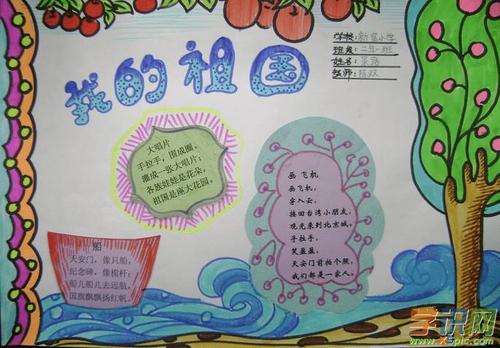 我的祖国
学校:新官小学
班级:二年一班
姓名:景蕩
教师:陈欢
大唱片
手拉手,围成圈,
围成一张大唱片;
各族娃娃是花朵,
祖国是座大花园。
画飞机
画飞机,
穿入云,
接回台湾小朋友,
观光来到北京城。
手拉手,
笑盈盈,
天安门前拍个照,
我们都是一家人。
船
天安门,像只船,
纪念碑,像桅杆;
船儿船儿去远航,
国旗飘飘扬红帆。
学识网
www.xspic.com